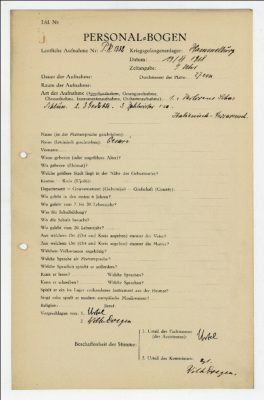 Lfd. Nr.
PERSONAL-BOGEN
Lautliche Aufnahme Nr.: P.K. 1332
Kriegsgefangenenlager: Hammelburg
Datum:
Zeitangabe: 9 Uhr
Dauer der Aufnahme:
Durchmesser der Platte: 27 cm
Raum der Aufnahme:
Art der Aufnahme (Sprechaufnahme, Gesangsaufnahme,
Choraufnahme, Instrumentenaufnahme, Orchesteraufnahme):
Name (in der Muttersprache geschrieben):
Name (lateinisch geschrieben):
Vorname:
Wann geboren (oder ungefähres Alter)?
Wo geboren (Heimat)?
Welche größere Stadt liegt in der Nähe des Geburtsortes?
Kanton — Kreis (Ujedz):
Department — Gouvernement (Gubernija) — Grafschaft (County):
Wo gelebt in den ersten 6 Jahren?
Wo gelebt vom 7. bis 20. Lebensjahr?
Was für Schulbildung?
Wo die Schule besucht?
Wo gelebt vom 20. Lebensjahr?
Aus welchem Ort (Ort und Kreis angeben) stammt der Vater?
Aus welchem Ort (Ort und Kreis angeben) stammt die Mutter?
Welchem Volksstamm angehörig?
Welche Sprache als Muttersprache?
Welche Sprachen spricht er außerdem?
Kann er lesen? Welche Sprachen?
Kann er schreiben? Welche Sprachen?
Spielt er ein im Lager vorhandenes Instrument aus der Heimat?
Singt oder spielt er modern europäische Musikweisen?
Religion: Beruf:
Vorgeschlagen von: 1. Urtel
2. Wilh. Doegen
Beschaffenheit der Stimme:
1. Urteil des Fachmannes
(des Assistenten): Urtel
2. Urteil des Kommissars: gez.
Wilh. Doegen.